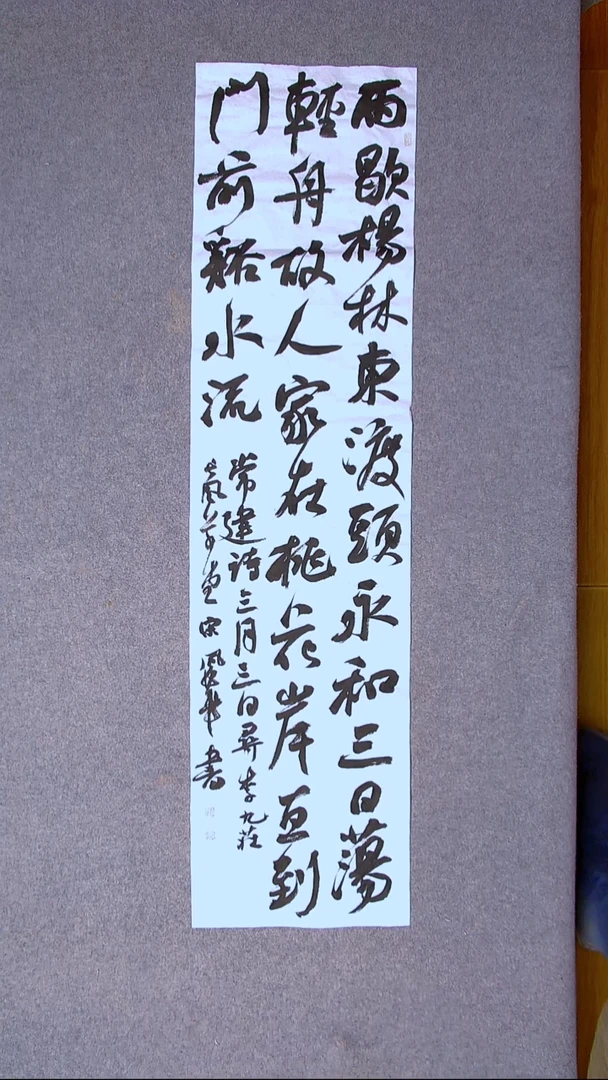 雨歇楊林東渡頭永和三日蕩
輕舟故人家在桃花岸直到
門前谿水流
常建詩三月三日尋李九莊
風堂宋書